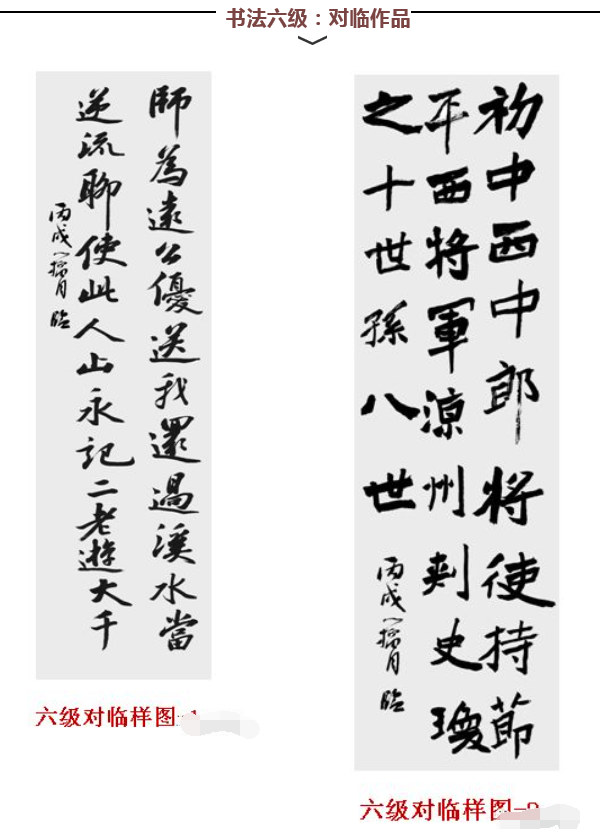 书法六级：对临作品
師為遠公優送我還過溪水當
逆流聊使此人山永記二老遊大千
丙戌八月 臨
六级对临样图-1
初中西中郎將使持節
平西將軍涼州刺史瓊
之十世孫八世
丙戌八月 臨
六级对临样图-2